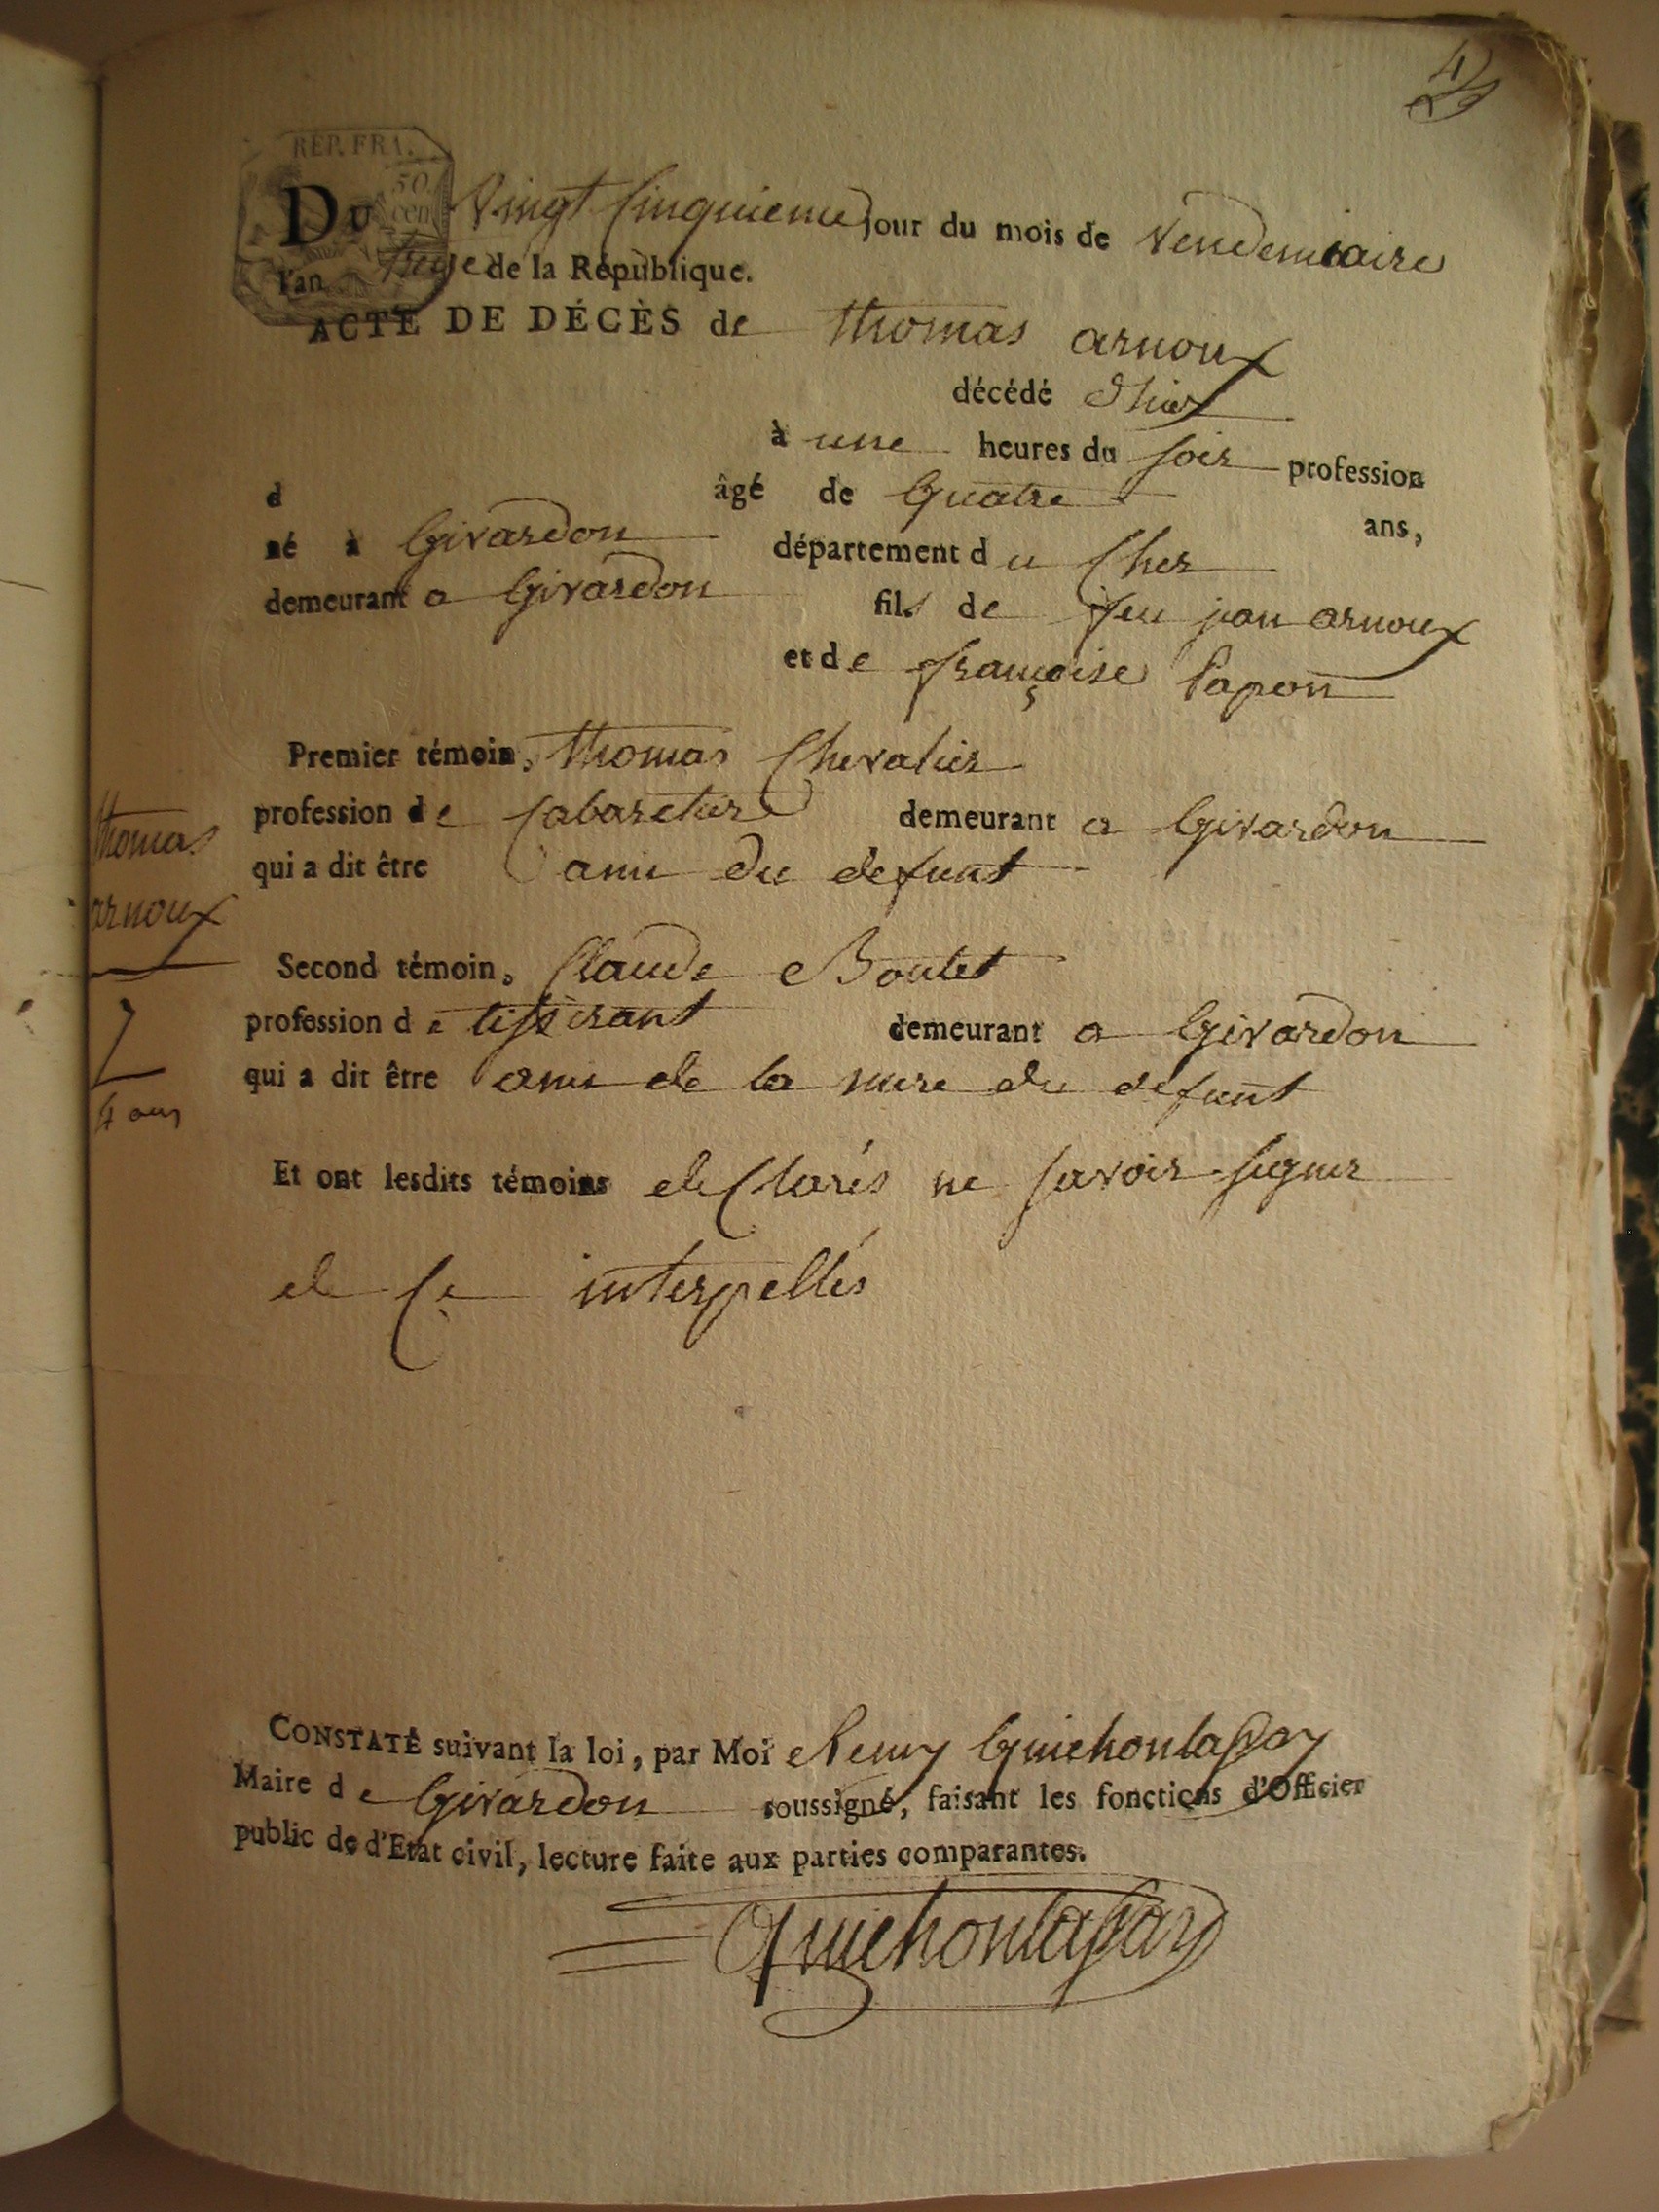 4
REP. FRA.
50
cen
Du Vingt Cinquieme jour du mois de Vendemiaire
l'an treize de la République.
ACTE DE DÉCÈS de thomas arnoux
décédé d'hier
à une heures du soir profession
d âgé de quatre ans,
né à Givardon département du Cher
demeurant a Givardon fils de feu jean arnoux
et de françoise Papon
Premier témoin, thomas Chevalier
profession de Cabaretier demeurant a Givardon
qui a dit être ami du defunt
thomas
arnoux
4 ans
Second témoin, Claude Boulet
profession de tisserant demeurant a Givardon
qui a dit être ami de la mere du defunt
Et ont lesdits témoins declarés ne savoir signer
de ce interpellés
CONSTATÉ suivant la loi, par Moi Remy Guichonlassay
Maire de Givardon soussigné, faisant les fonctions d'Officier
public de d'Etat civil, lecture faite aux parties comparantes.